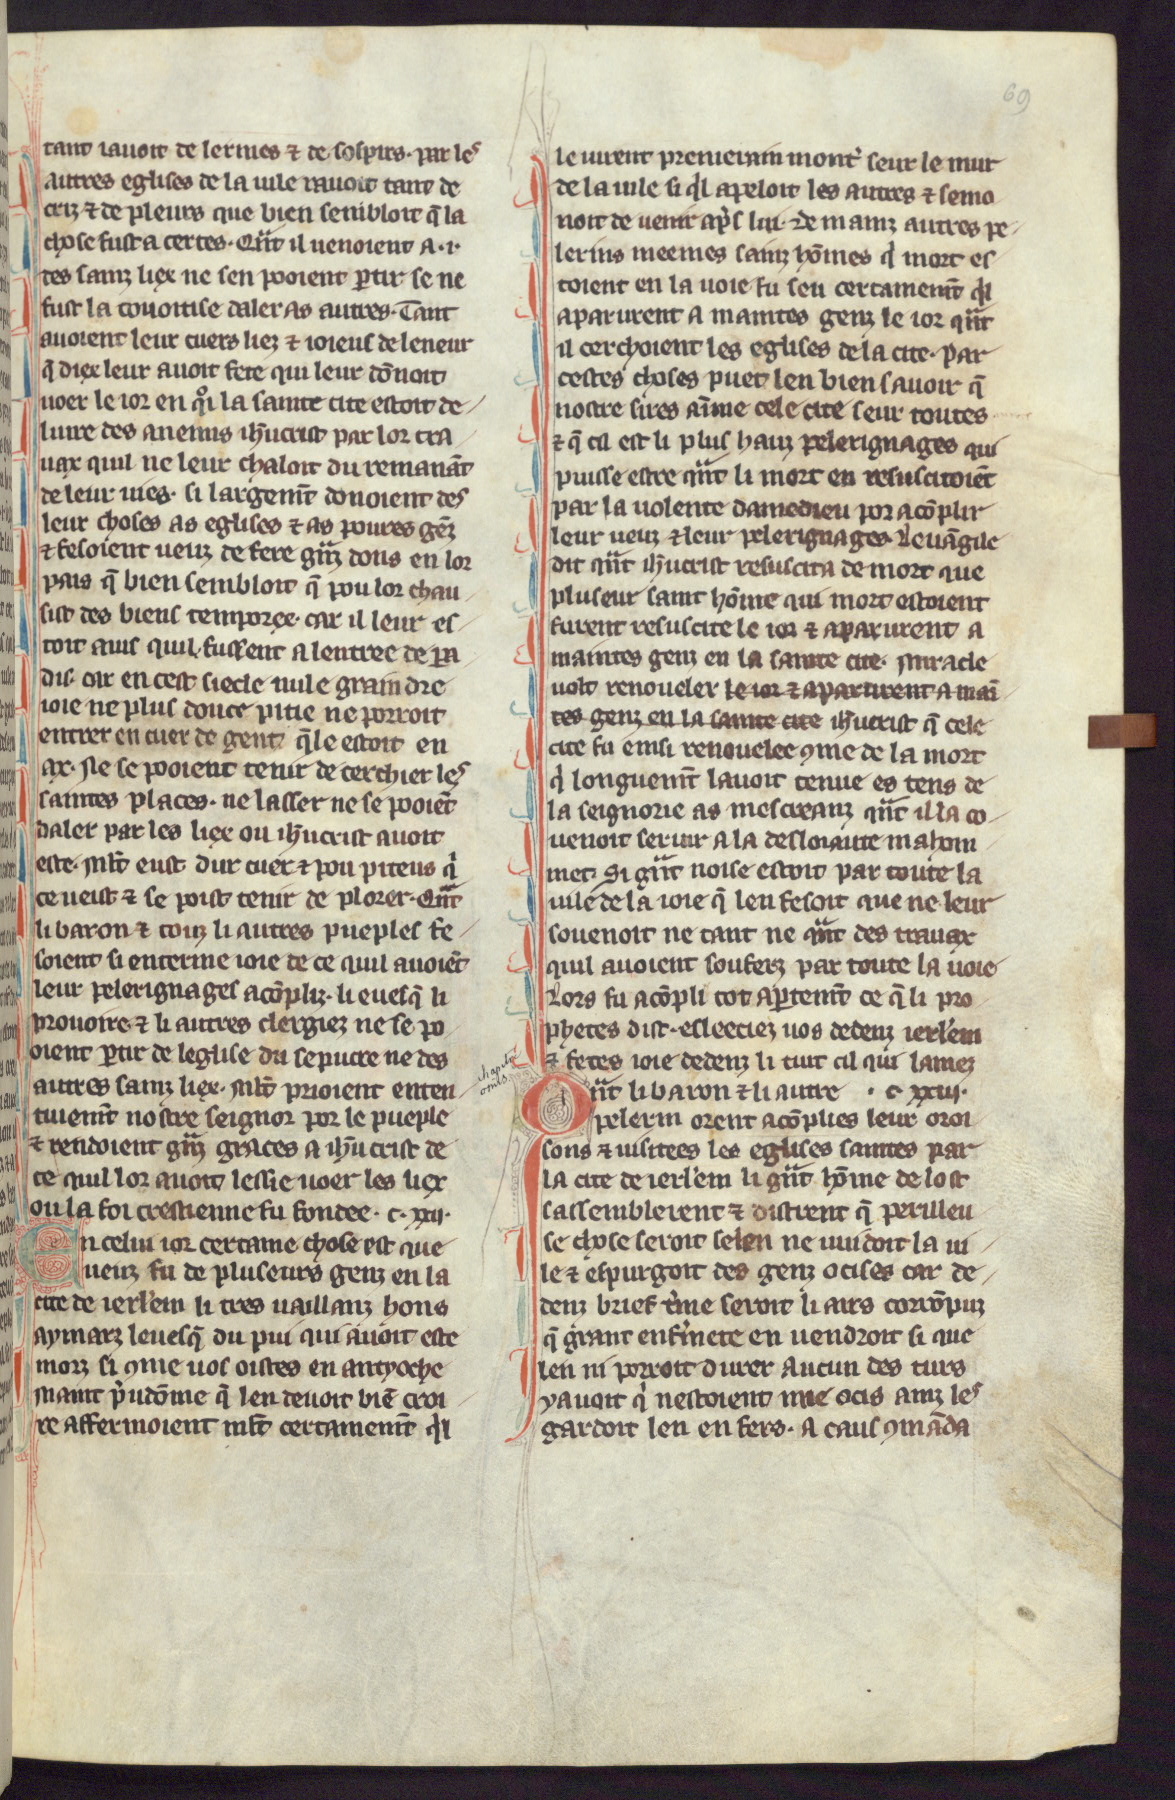 69
tant iauoit de lermes ⁊ de sospirs. par les
autres eglises de la uile rauoit tant de
criz ⁊ de pleurs que bien sembloit q̄ la
chose fust a certes. Qn̄t il uenoient a .i.
des sainz liex ne sen pooient ꝑtir se ne
fust la couoitise daler as autres. Tant
auoient leur cuers liez ⁊ ioieus de leneur
q̄ diex leur auoit fete qui leur dōnoit
uoer le ior en qͦi la sainte cite estoit de
liure des anemis ih̄ucrist par lor tra
uax quil ne leur chaloit du remanāt
de leur uies. si largem̄t donoient des
leur choses as eglises ⁊ as poures gēz
⁊ fesoient ueuz de fere gn̄z dons en lor
pais q̄ bien sembloit q̄ pou lor chau
sist des biens temporex. car il leur es
toit auis quil fussent a lentree de pa
dis. car en cest siecle nule graindre
ioie ne plus douce pitie ne porroit
entrer en cuer de gent q̄le estoit en
ax. Ne se pooient tenir de cerchier les
saintes places. ne lasser ne se pooiēt
daler par les liex ou ih̄ucrist auoit
este. Ml̄t eust dur cuer ⁊ pou piteus qͥ
ce ueist ⁊ se poist tenir de plorer. Qn̄t
li baron ⁊ touz li autres pueples fe
soient si enterine ioie de ce quil auoiēt
leur pelerignages acōpliz. li euesq̄ li
prouoire ⁊ li autres clergiez ne se po
oient ꝑtir de leglise du sepucre ne des
autres sainz liex. Ml̄t prioient enten
tiuem̄t nostre seignor por le pueple
⁊ rendoient gn̄z graces a ih̄ucrist de
ce quil lor auoit lessie uoer les liex
ou la foi crestienne fu fondee. c. xxii.
En celui ior certaine chose est que
ueuz fu de pluseurs genz en la
cite de ierl'em li tres uaillanz hons
aymarz leuesq̄ du pui qui auoit este
morz si ꝯme uos oistes en antyoche
Maint pͥudōme q̄ len deuoit biē croi
re affermoient ml̄t certainem̄t qͥl
le uirent premerain mont̉ seur le mur
de la uile si qͥl apeloit les autres ⁊ semo
noit de uenir apͥs lui. De mainz autres pe
lerins meemes sainz hōmes qͥ mort es
toient en la uoie fu seu certainem̄t qͥl
aparurent a maintes genz le ior qn̄t
il cerchoient les eglises de la cite. Par
cestes choses puet len bien sauoir q̄
nostre sires aīme cele cite seur toutes
⁊ q̄ cil est li plus hauz pelerignages qui
puisse estre qn̄t li mort en resuscitoiēt
par la uolente damedieu por acōplir
leur ueuz ⁊ leur pelerignages. Leuāgile
dit qn̄t ih̄ucrist resuscita de mort que
pluseur saint hōme qui mort estoient
furent resuscite le ior ⁊ aparurent a
maintes genz en la sainte cite. Miracle
uolt renoueler le ior ⁊ aparurent a main
tes genz en la sainte cite ih̄ucrist q̄ cele
cite fu einsi renouelee ꝯme de la mort
qͥ longuem̄t lauoit tenue es tens de
la seignorie as mescreanz qn̄t il la co
uenoit seruir a la desloiaute mahom
met. Si gn̄t noise estoit par toute la
uile de la ioie q̄ len fesoit que ne leur
souenoit ne tant ne qn̄t des trauax
quil auoient soufferz par toute la uoie
Lors fu acōpli tot apertem̄t ce q̄ li pro
phetes dist. esleeciez uos dedenz ierl'em
⁊ fetes ioie dedenz li tuit cil qui lamez
Qn̄t li baron ⁊ li autre . c. xxiii.
pelerin orent acōplies leur oroi
sons ⁊ uisitees les eglises saintes par
la cite de ierl'em li gn̄t hōme de lost
sassemblerent ⁊ distrent q̄ perilleu
se chose seroit selen ne uuidoit la ui
le ⁊ espurgoit des genz ocises car de
denz brief t̉me seroit li airs corrōpuz
q̄ grant enf̉mete en uendroit si que
len ni porroit durer Aucun des turs
yauoit qͥ nestoient mie ocis ainz les
gardoit len en fers. A caus ꝯmāda